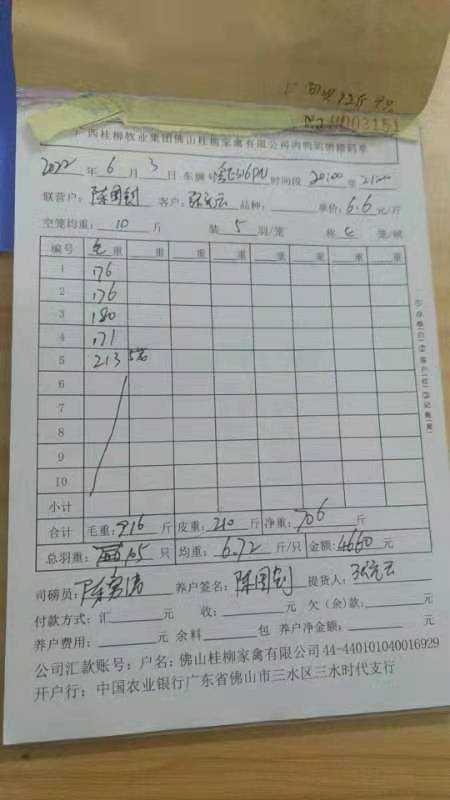 广西桂柳牧业集团佛山桂柳家禽有限公司肉鸭销售磅码单
2022年6月3日 车牌号 时间段20:00至21:00
联营户:陈国钊 客户:张元云 品种: 单价:6.6元/斤
空笼均重:10斤 装5羽/笼 称 笼/磅
编号 毛重 重 重 重 重 重 重
1 176
2 176
3 180
4 171
5 213 5笼
6
7
8
9
10
小计
合计 毛重:916斤 皮重:210斤 净重:706斤
总羽重:105只 均重:6.72斤/只 金额:4660元
司磅员: 养户签名:陈国钊 提货人:张元云
付款方式:汇 元 收: 元 欠(余)款: 元
养户费用: 元 余料 包 养户净金额: 元
公司汇款账号:户名:佛山桂柳家禽有限公司44-440101040016929
开户行:中国农业银行广东省佛山市三水区三水时代支行